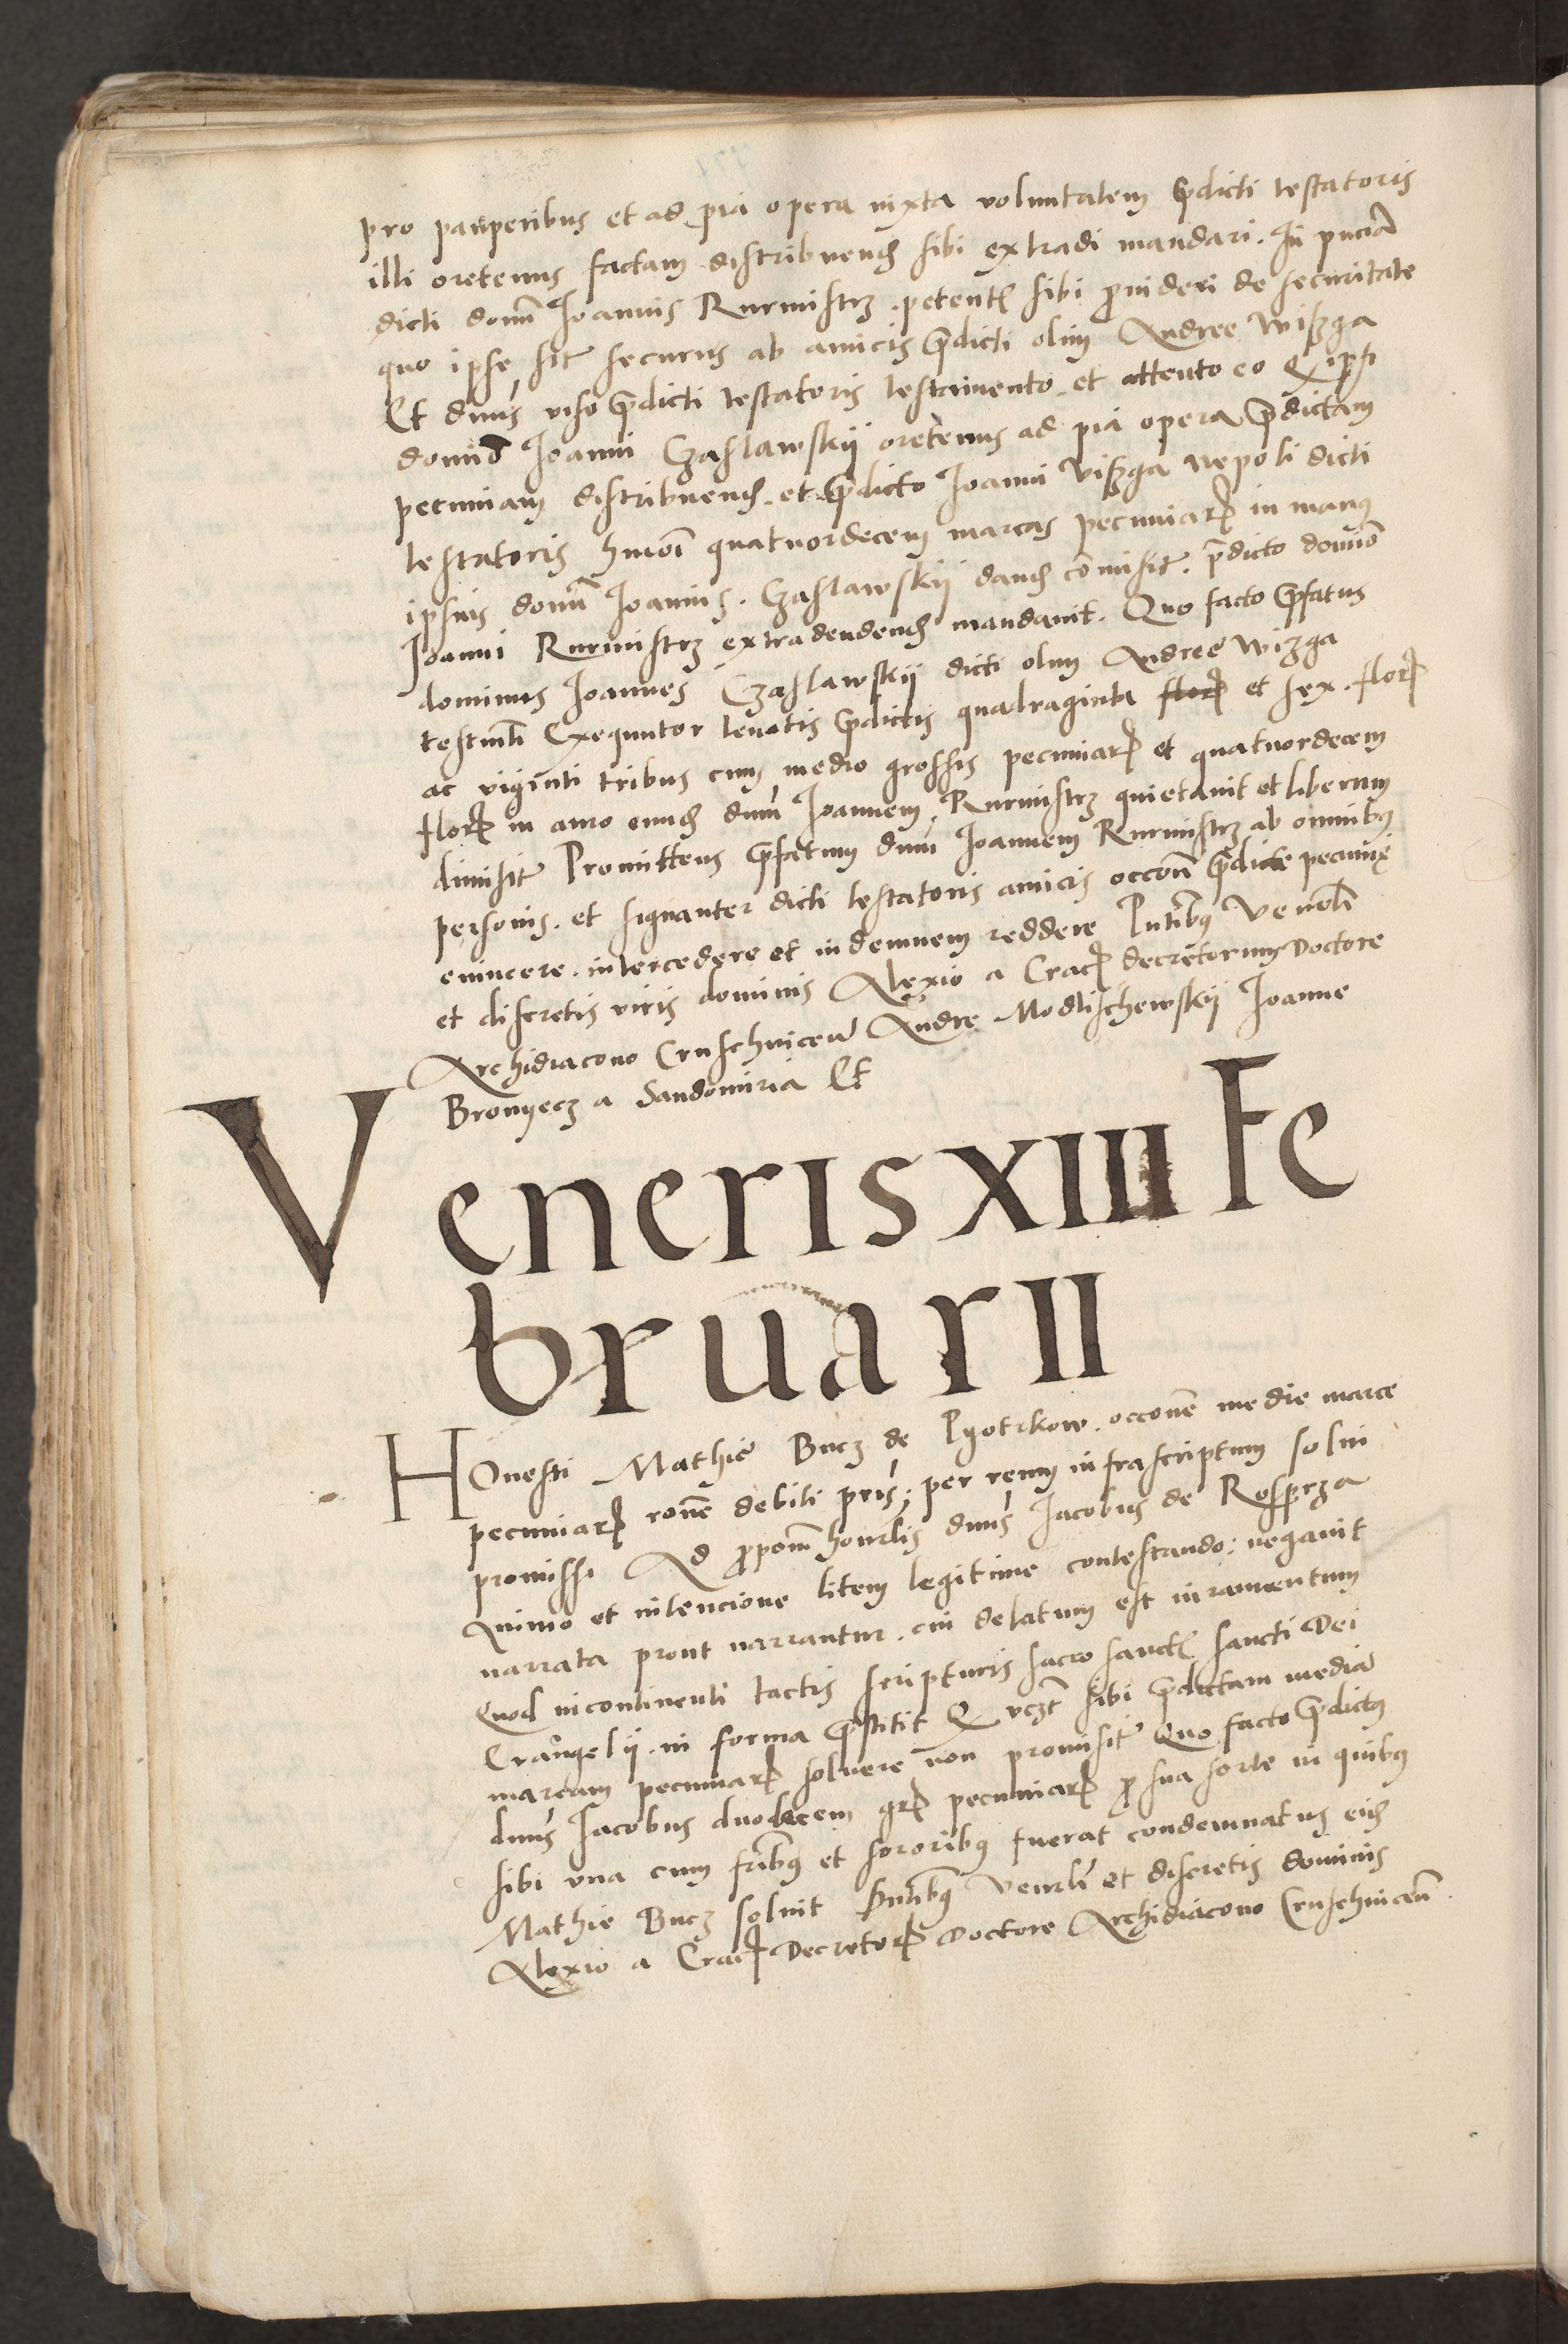 pro pauperibus et ad pia opera iuxta voluntatem p̄dicti testatoris
illi oretenus factam distribuend sibi extradi mandari. In pn̄cia
dicti domī Ioannis Rurmistrz. petent sibi ꝓvideri de securitate
quo ipse sit securus ab amicis p̄dicti olim Andree Wißga
Et dn̄us viso p̄dicti testatoris testamento. et attento eo Q ip̄si
domīo Ioanni Czaslawskij oretenus ad pia opera p̄dictam
pecuniam distribuend. et p̄dicto Ioanni Vißga nepoti dicti
testatoris hmōi quatuordecem marcas pecuniar in man9
ipsius domī Ioannis. Czaslawskij dand cōmisit. p̄dicto domīo
Ioanni Rurmistrz extradendend mandavit. Quo facto p̄fatus
dominus Ioannes Czaslawskij dicti olim Andree Wißga
testm̄ti Exequutor levatis p̄dictis quadraginta flor et sex. flor
ac viginti tribus cum medio grossis pecuniar et quatuordecem
flor in auro eund dn̄m Ioannem. Rurmistrz quietavit et liberum
dimisit Promittens p̄fatum dn̄m Ioannem Rurmistrz ab omnib9
personis. et signanter dicti testatoris amicis occōne p̄dicte pecunię
evincere. intercedere et indemnem reddere Pn̄tib9 Venel̄i
et discretis viris dominis Alexio a Crac decretorum Doctore
Archidiacono Cruschvicen̄ Andre Modlischewskij Ioanne
Bronyecz a Sandomiria Et
Veneris XIIII Fe
bruarII
HOnesti Mathie Bucz de Pyotrkow. occōnē medie marce
pecuniar rōnē debiti pn̄s; per reum infrascriptum solui
promissi Ad ꝓpom̄ honrl̄is dn̄us Iacobus de Rosprza
Animo et intencione litem legitime contestando; negavit
narrata prout narrantur. cui delatum est iuramentum
Quod incontinenti tactis scripturis sacrosanct sancti Dei
Evangelij. in forma p̄stitit Q vcz̄ sibi p̄dictam media
marcam pecuniar soluere non promisit Quo facto p̄dict9
dn̄us Iacobus duodecem gr pecuniar ꝓ sua sorte in quib9
sibi vna cum fr̄ib9 et sororib9 fuerat condemnatus eid
Mathie Bucz soluit Pn̄tib9 Venrl̄i et discretis dominis
Alexio a Crac Decretor Doctore Archidiacono Cruschvicen̄